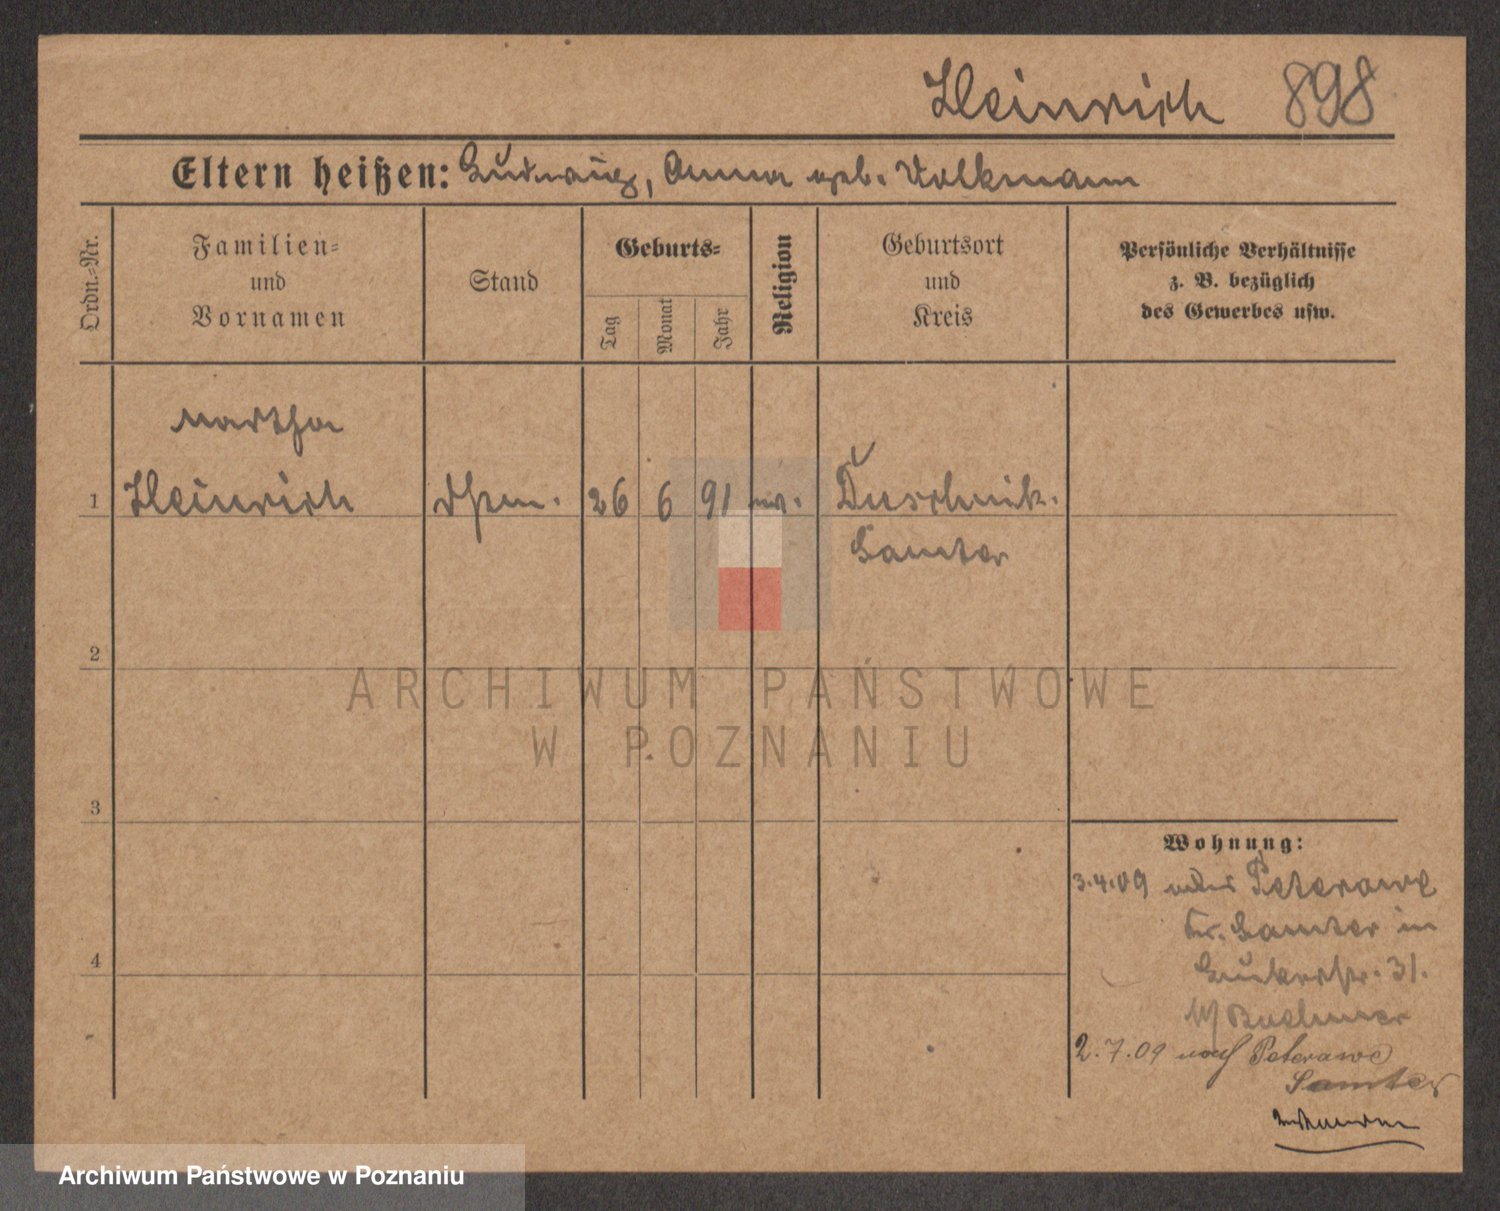 Heinrich 898
Eltern heißen: Ludwig, Anna geb. Volkmann
Ordn.-Nr.
Familien-
und
Vornamen
Stand
Geburts-
Tag
Monat
Jahr
Religion
Geburtsort
und
Kreis
Persönliche Verhältnisse
z. B. bezüglich
des Gewerbes usw.
Martha
1 Heinrich 26 6 91 ev. Duschnik.
Samter
2
3
4
Wohnung:
3.4.09 Peterawe
Kr. Samter in
31.
Buchner
2.7.09 nach Peterawe
Samter
ARCHIWUM PAŃSTWOWE
W POZNANIU
Archiwum Państwowe w Poznaniu